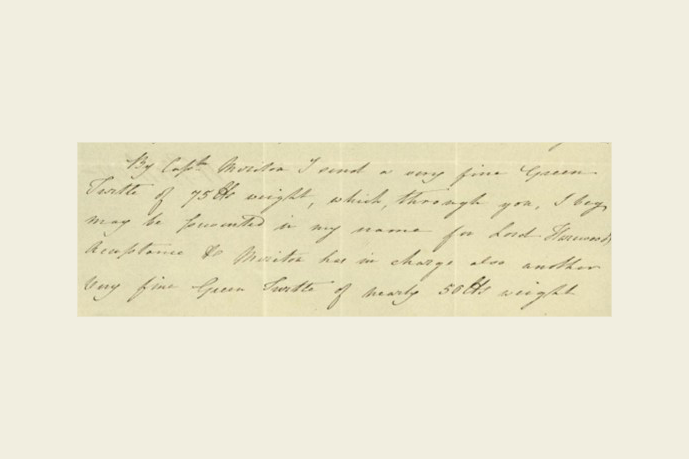 By Capt Moriton I send a very fine Green
Turtle of 75 lbs weight, which, through you, I beg
may be presented in my name for Lord Harewoods
Acceptance & Moriton has in charge also another
Very fine Green Turtle of nearly 50 lbs weight